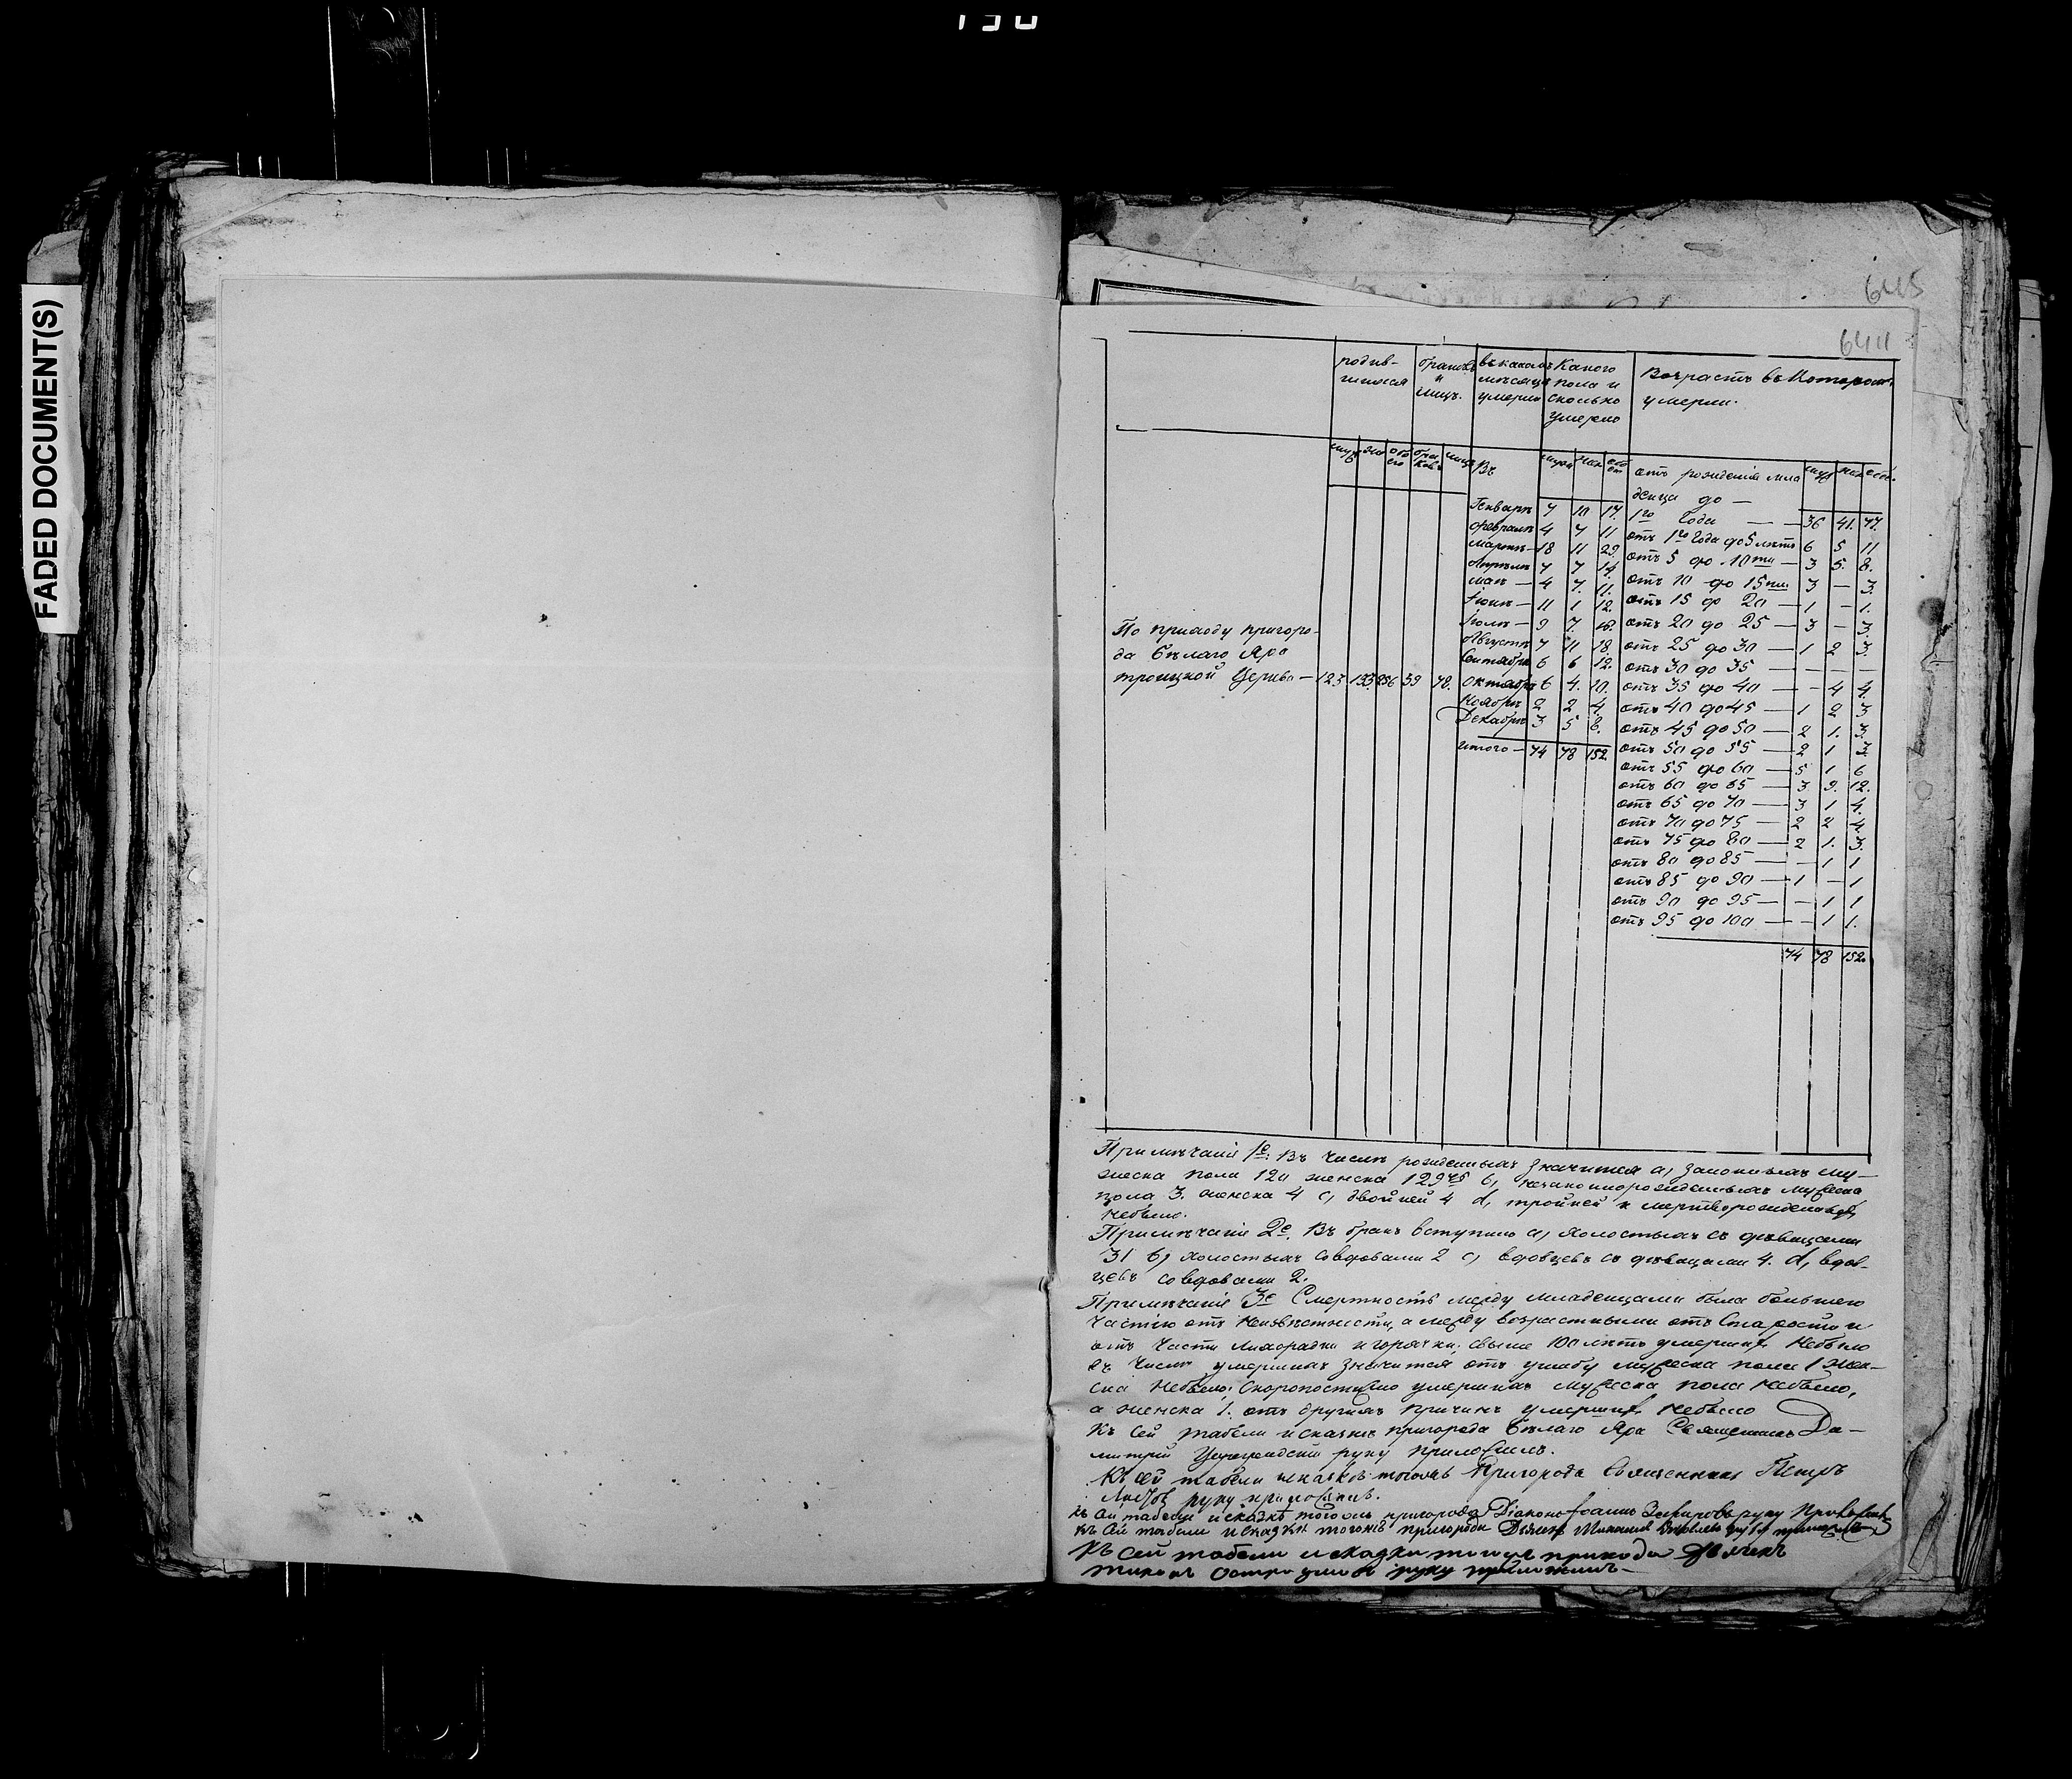 FADED DOCUMENT(S)
645
644
родив-
шихся
браковъ
и
лицъ.
въ какомъ
мѣсяцѣ
умерли
Какого
пола и
сколько
умерло
Возрастъ въ Которомъ
умерли.
муж жен обо
его
бра
ковъ
лицъ
Въ
муж жен обо
его
отъ рожденія мла
денца до —
муж жен обое.
1го Года — — 36 41. 77.
отъ 1го Года до 5 лѣтъ 6 5 11
отъ 5 до 10ти — 3 5. 8.
отъ 10 до 15ти 3 — 3.
отъ 15 до 20 — 1 — 1.
отъ 20 до 25 — 3 — 3.
отъ 25 до 30 — 1 2 3.
отъ 30 до 35 — — — —
отъ 35 до 40 — — 4 4.
отъ 40 до 45 — 1 2 3
отъ 45 до 50 — 2 1. 3.
отъ 50 до 55 — 2 1 3
отъ 55 до 60 — 5 1 6
отъ 60 до 65 — 3 9. 12.
отъ 65 до 70 — 3 1 4.
отъ 70 до 75 — 2 2 4
отъ 75 до 80 — 2 1. 3.
отъ 80 до 85 — — 1 1
отъ 85 до 90 — 1 — 1
отъ 90 до 95 — — 1 1
отъ 95 до 100 — — 1 1.
74 78 152.
Генварѣ 7 10 17.
Февралѣ 4 7 11
Мартѣ — 18 11 29.
Апрѣлѣ 7 7 14
Маѣ — 4 7. 11.
Іюнѣ — 11 1 12.
Іюлѣ — 9 7. 16.
Августѣ 7 11 18.
Сентябрѣ 6 6 12.
Октябрѣ 6 4. 10.
Ноябрѣ 2 2 4.
Декабрѣ 3 5 8.
итого — 74 78 152
По приходу пригоро-
да Бѣлаго Яра
троицкой Церкви — 123 133 256 39 78.
Примѣчаніе 1е: Въ Числѣ рожденныхъ Значится а, законныхъ му-
жеска пола 120 женска 129 б, незаконнорожденныхъ мужеска
пола 3. женска 4 с, двойней 4 d, тройней и мертворожденныхъ
небыло.
Примѣчаніе 2е. Въ бракъ вступило а, холостыхъ съ дѣвицами
31 б, холостыхъ со вдовами 2 с, вдовцевъ съ дѣвицами 4. d, вдов-
цевъ со вдовами 2.
Примѣчаніе 3е Смертность между младенцами была большею
Частію отъ неизвѣстности, а между возрастными отъ Старости и
отъ Части лихорадки и горячки; свыше 100 лѣтъ умершихъ небыло
въ Числѣ умершихъ Значится отъ ушибу мужеска пола 1 жен-
ска небыло; Скоропостижно умершихъ мужеска пола небыло,
а женска 1. отъ другихъ причинъ умершихъ небыло
Къ сей табели и сказкѣ пригорода Бѣлаго Яра Священникъ Ди-
митрій руку приложилъ.
Къ сей табели и сказкѣ тогожъ Пригорода Священникъ Петръ
руку приложилъ.
Къ Сей табели и сказкѣ тогожъ пригорода Діаконъ Іоаннъ руку Приложилъ
Къ Сей табели и сказкѣ тогожъ пригорода Дьячекъ Михаилъ руку приложилъ
Къ сей табели и сказки тогожъ прихода Дьячекъ
руку приложилъ —